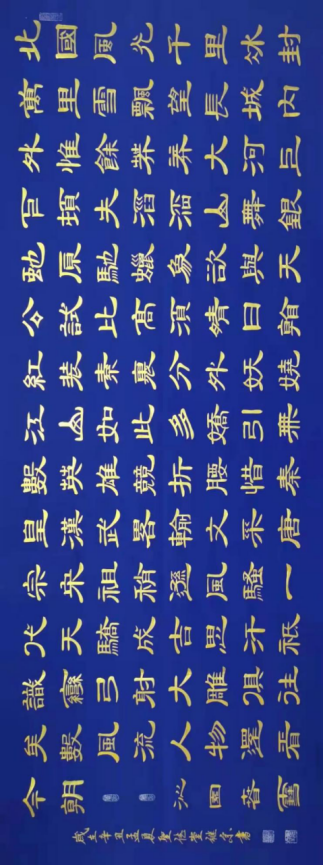 北國風光千里冰封
萬里雪飄望長城內
外惟餘莽莽大河上
下頓失滔滔山舞銀
蛇原馳蠟象欲與天
公試比高須晴日看
紅裝素裹分外妖嬈
江山如此多嬌引無
數英雄競折腰惜秦
皇漢武略輸文采唐
宗宋祖稍遜風騷一
代天驕成吉思汗祇
識彎弓射大雕俱往
矣數風流人物還看
今朝 沁園春雪